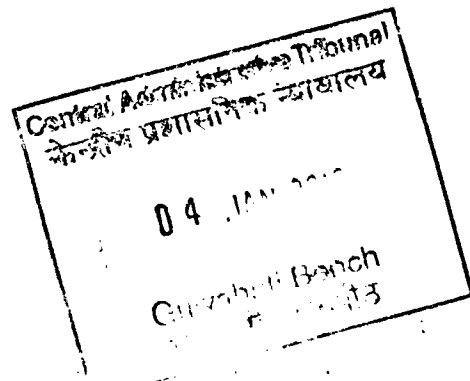 Central Administrative Tribunal
केन्द्रीय प्रशासनिक न्यायालय
04 JAN
Guwahati Bench